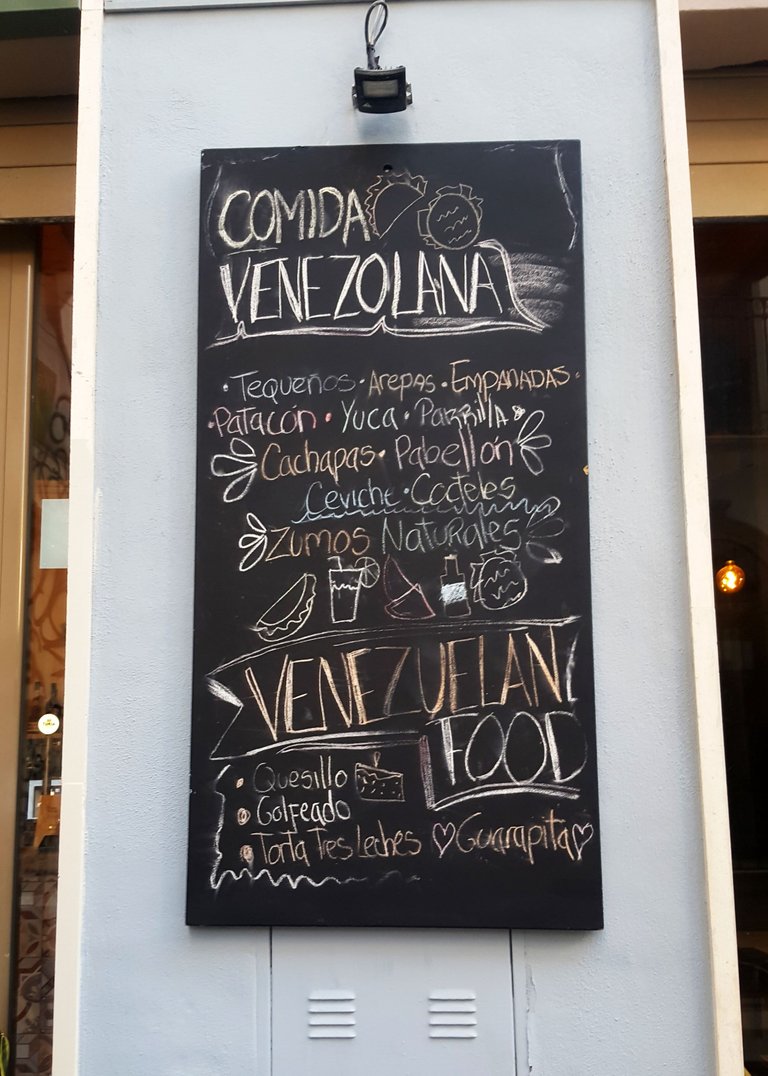 COMIDA
VENEZOLANA
· TEQUEÑOS · AREPAS · EMPANADAS ·
· PATACÓN · YUCA · PARRILLA
Cachapas · Pabellón
Ceviche · Cocteles
ZUMOS NATURALES
VENEZUELAN
FOOD
• Quesillo
• Golfeado
• Torta Tres Leches ♡ Guarapita ♡